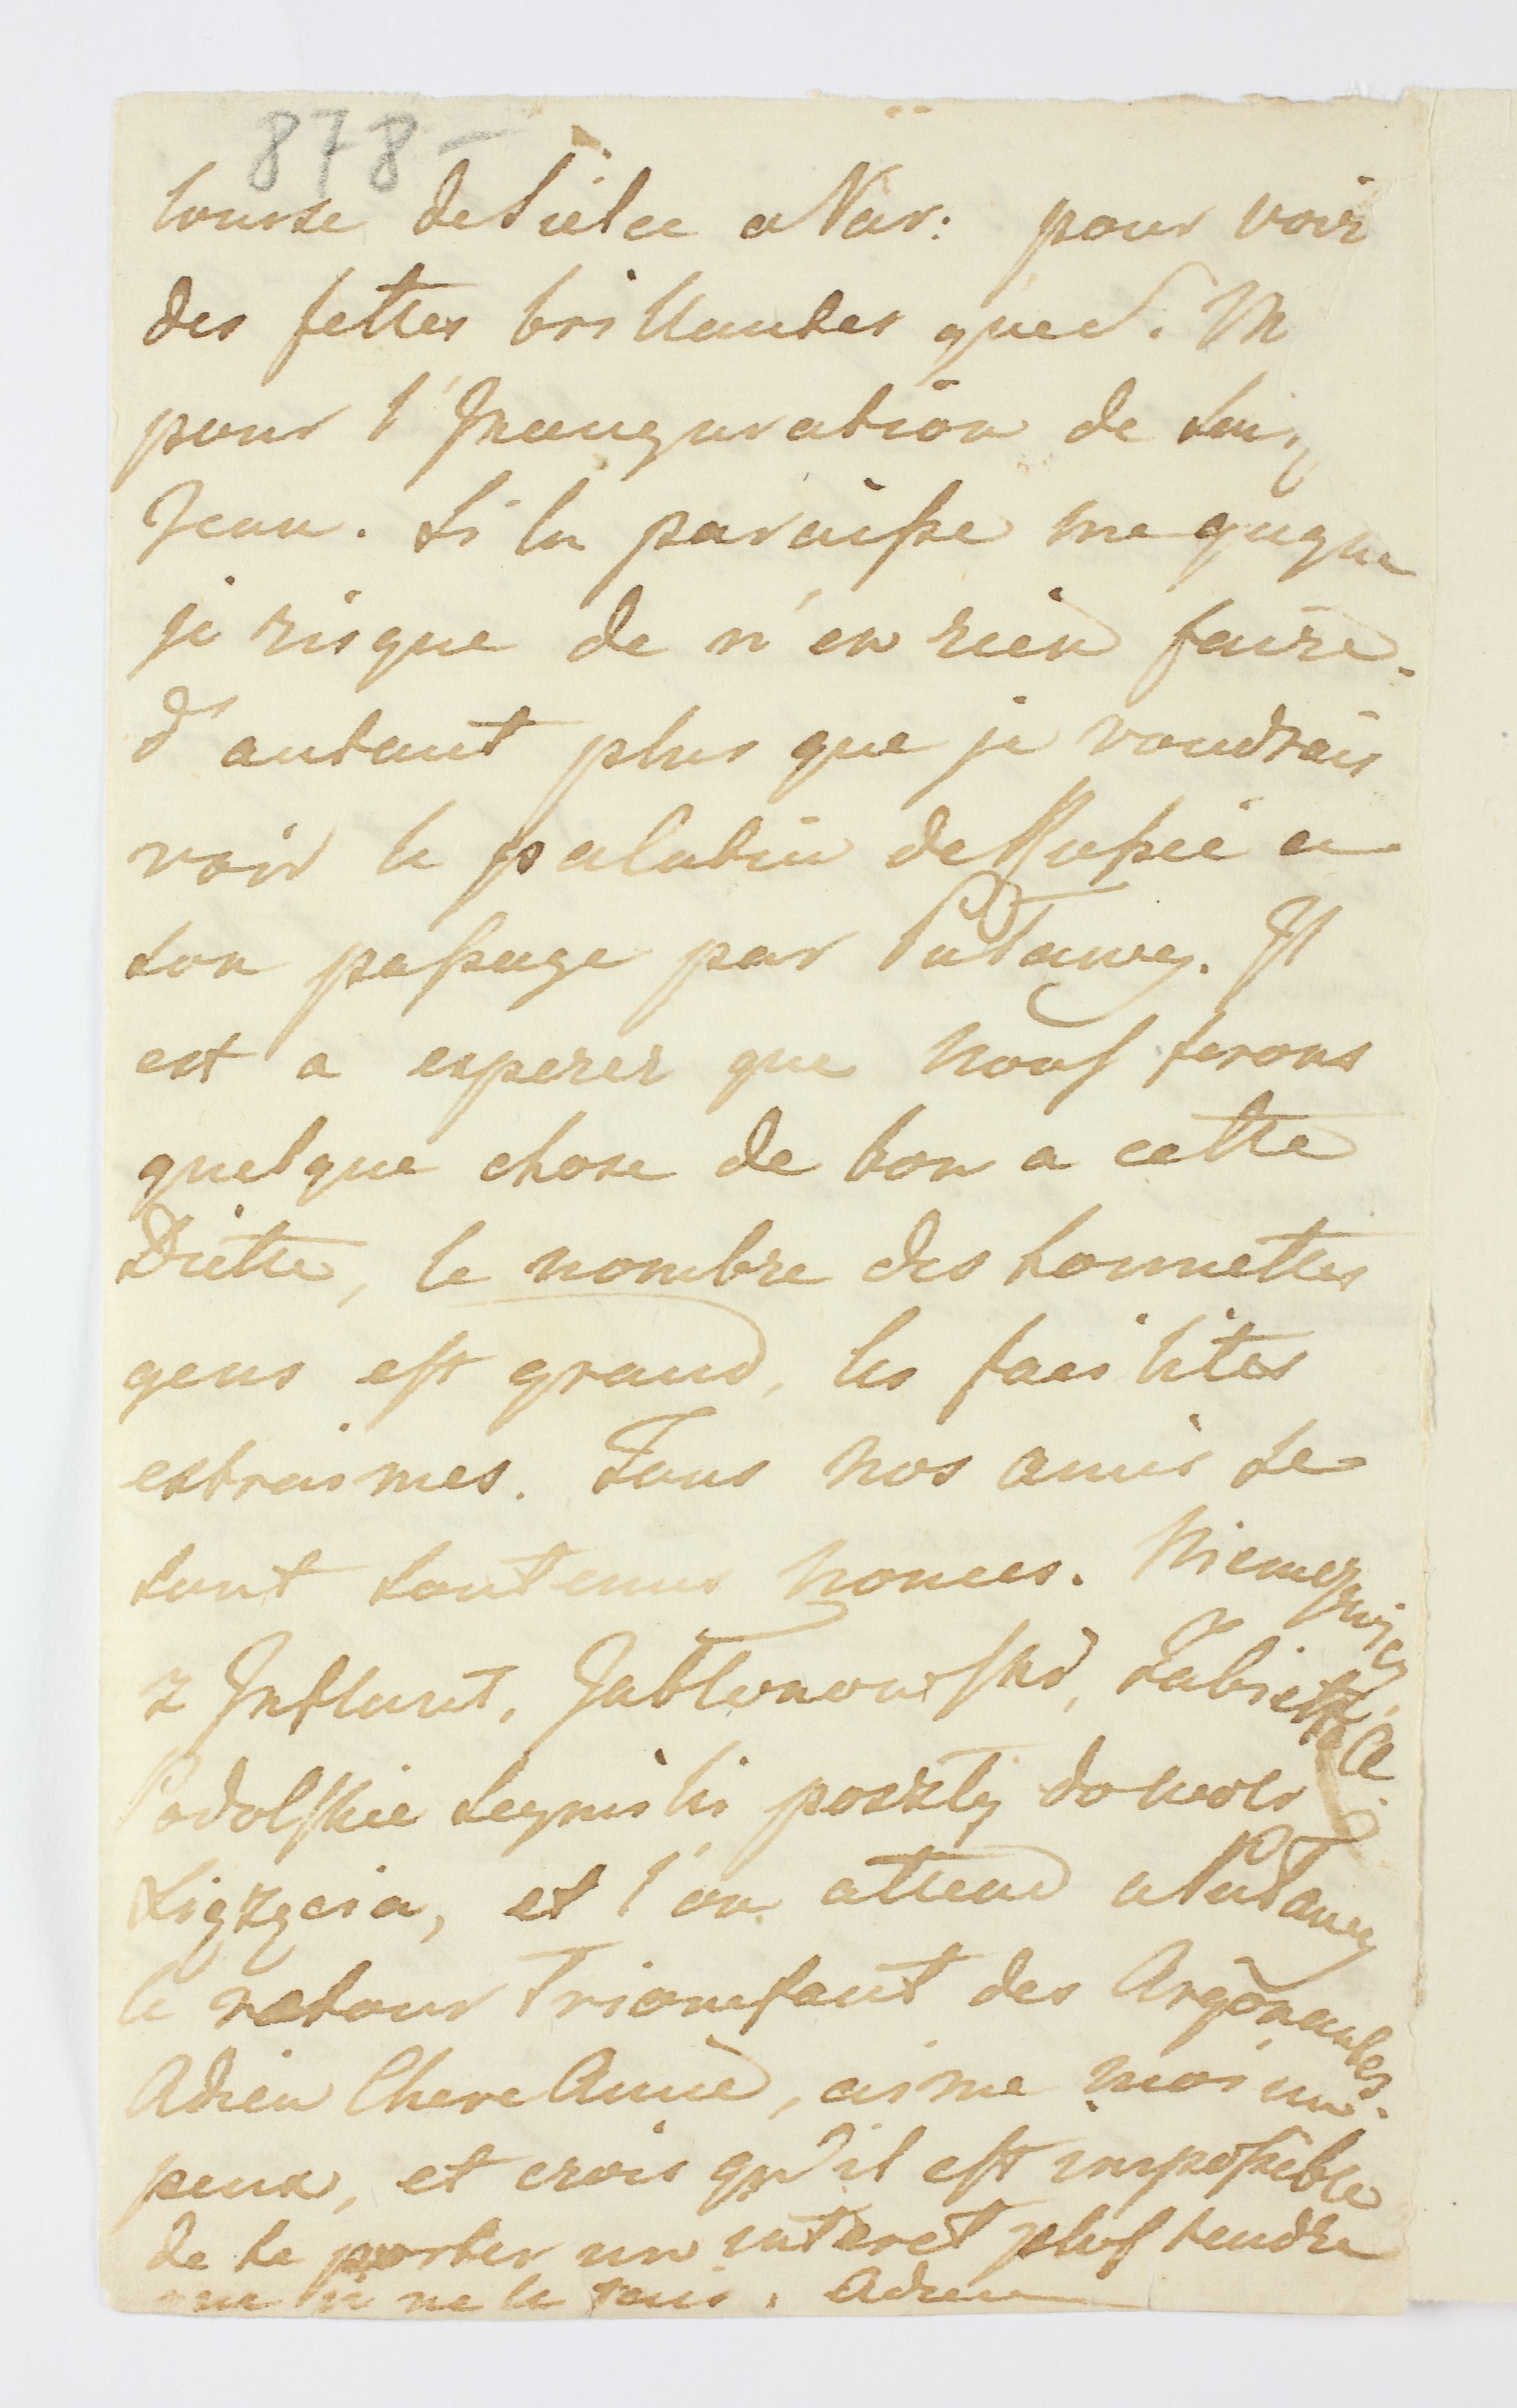 878 -
course de Sielce a Var: pour voir
des fettes brillantes que S. M
pour l'Inauguration de
Jean. Si la paraisse me gagne
je risque de n'en rien faire.
d'autant plus que je voudrais
voir le palatin de Russie a
son passage par Puławy. Il
est a esperer que nous ferons
quelque chose de bon a cette
Diette, le nombre des honnettes
gens est grand, les facilites
extraimes. Tous nos amis se
sont soutenus nonces. Niemcewicz
z Inflant, Jabłonowski,
Podolskie Seymiki poszły do woli
Xiązęcia, et l'on attend a Puławy
le retour Triomfant des Argonautes.
Adieu Chere Amie, aime moi un
peux, et crois qu'il est impossible
de te porter un interet plus tendre
que je ne le fais. Adieu